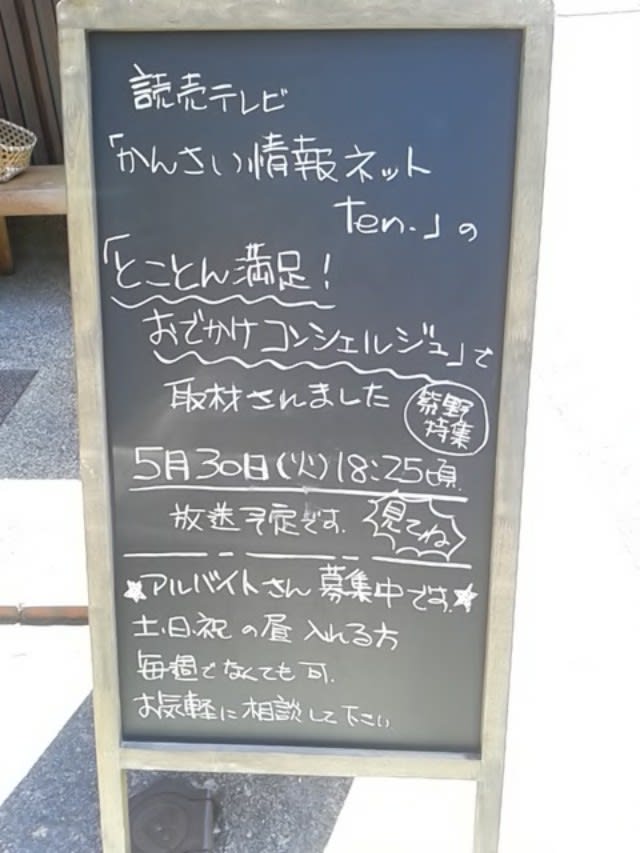 読売テレビ
「かんさい情報ネット
ten.」の
「とことん満足!
おでかけコンシェルジュ」で
取材されました
紫野
特集
5月30日(火)18:25頃
放送予定です.
見てね
★アルバイトさん募集中です.★
土.日.祝の昼入れる方
毎週でなくても可.
お気軽に相談して下さい